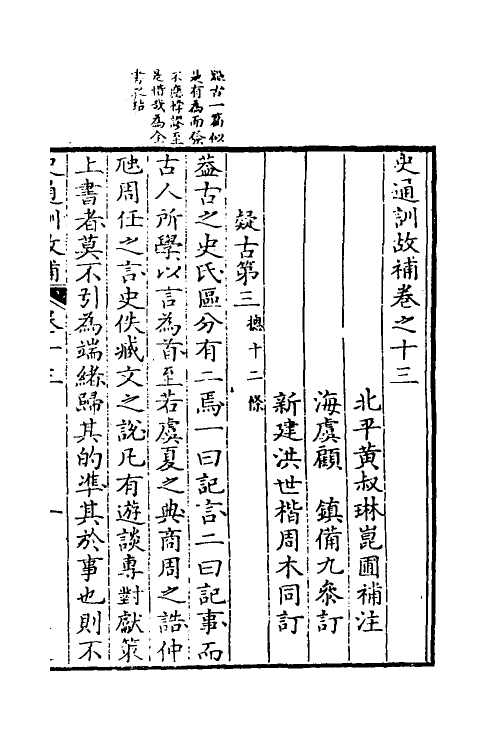 疑古一篇似
是有為而發
不應悖謬至
是惜哉為全
書之玷
史通訓故補卷之十三
北平黃叔琳崑圃補注
海虞顧　鎮備九叅訂
新建洪世楷周木同訂
疑古第三總十二條
葢古之史氏區分有二焉一曰記言二曰記事而
古人所學以言為首至若虞夏之典商周之誥仲
虺周任之言史佚臧文之說凡有遊談專對獻策
上書者莫不引為端緒歸其的凖其於事也則不
史通訓故補　卷十三　一